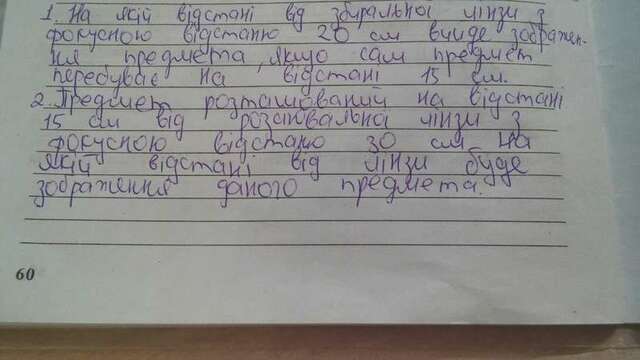 1. На якій відстані від збиральної лінзи з
фокусною відстанню 20 см вийде зображен-
ня предмета, якщо сам предмет
перебуває на відстані 15 см.
2. Предмет розташований на відстані
15 см від розсіювальної лінзи з
фокусною відстано 30 см. На
якій відстані від лінзи буде
зображення даного предмета.
60